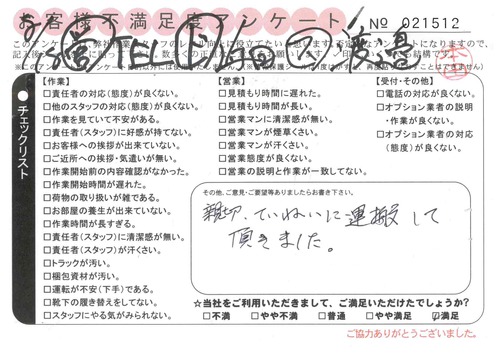 お客様不満足度アンケート No 021512
チェックリスト
【作業】
□責任者の対応(態度)が良くない。
□他のスタッフの対応(態度)が良くない。
□作業を見ていて不安がある。
□責任者(スタッフ)に好感が持てない。
□お客様への挨拶が出来ていない。
□ご近所への挨拶・気遣いが無い。
□作業開始前の内容確認がなかった。
□作業開始時間が遅れた。
□荷物の取り扱いが雑である。
□お部屋の養生が出来ていない。
□作業時間が長すぎる。
□責任者(スタッフ)に清潔感が無い。
□責任者(スタッフ)が汗くさい。
□トラックが汚い。
□梱包資材が汚い。
□運転が不安(下手)である。
□靴下の履き替えをしてない。
□スタッフにやる気がみられない。
【営業】
□見積もり時間に遅れた。
□見積もり時間が長い。
□営業マンに清潔感が無い。
□営業マンが煙草くさい。
□営業マンが汗くさい。
□営業態度が良くない。
□営業の説明と作業が一致してない。
【受付・その他】
□電話の対応が良くない。
□オプション業者の説明・作業が良くない。
□オプション業者の対応(態度)が良くない。
その他、ご意見・ご要望等ありましたらお書き下さい。
親切、ていねいに運搬して
頂きました。
☆当社をご利用いただきまして、ご満足いただけたでしょうか?
□不満 □やや不満 □普通 □やや満足 □満足
ご協力ありがとうございました。